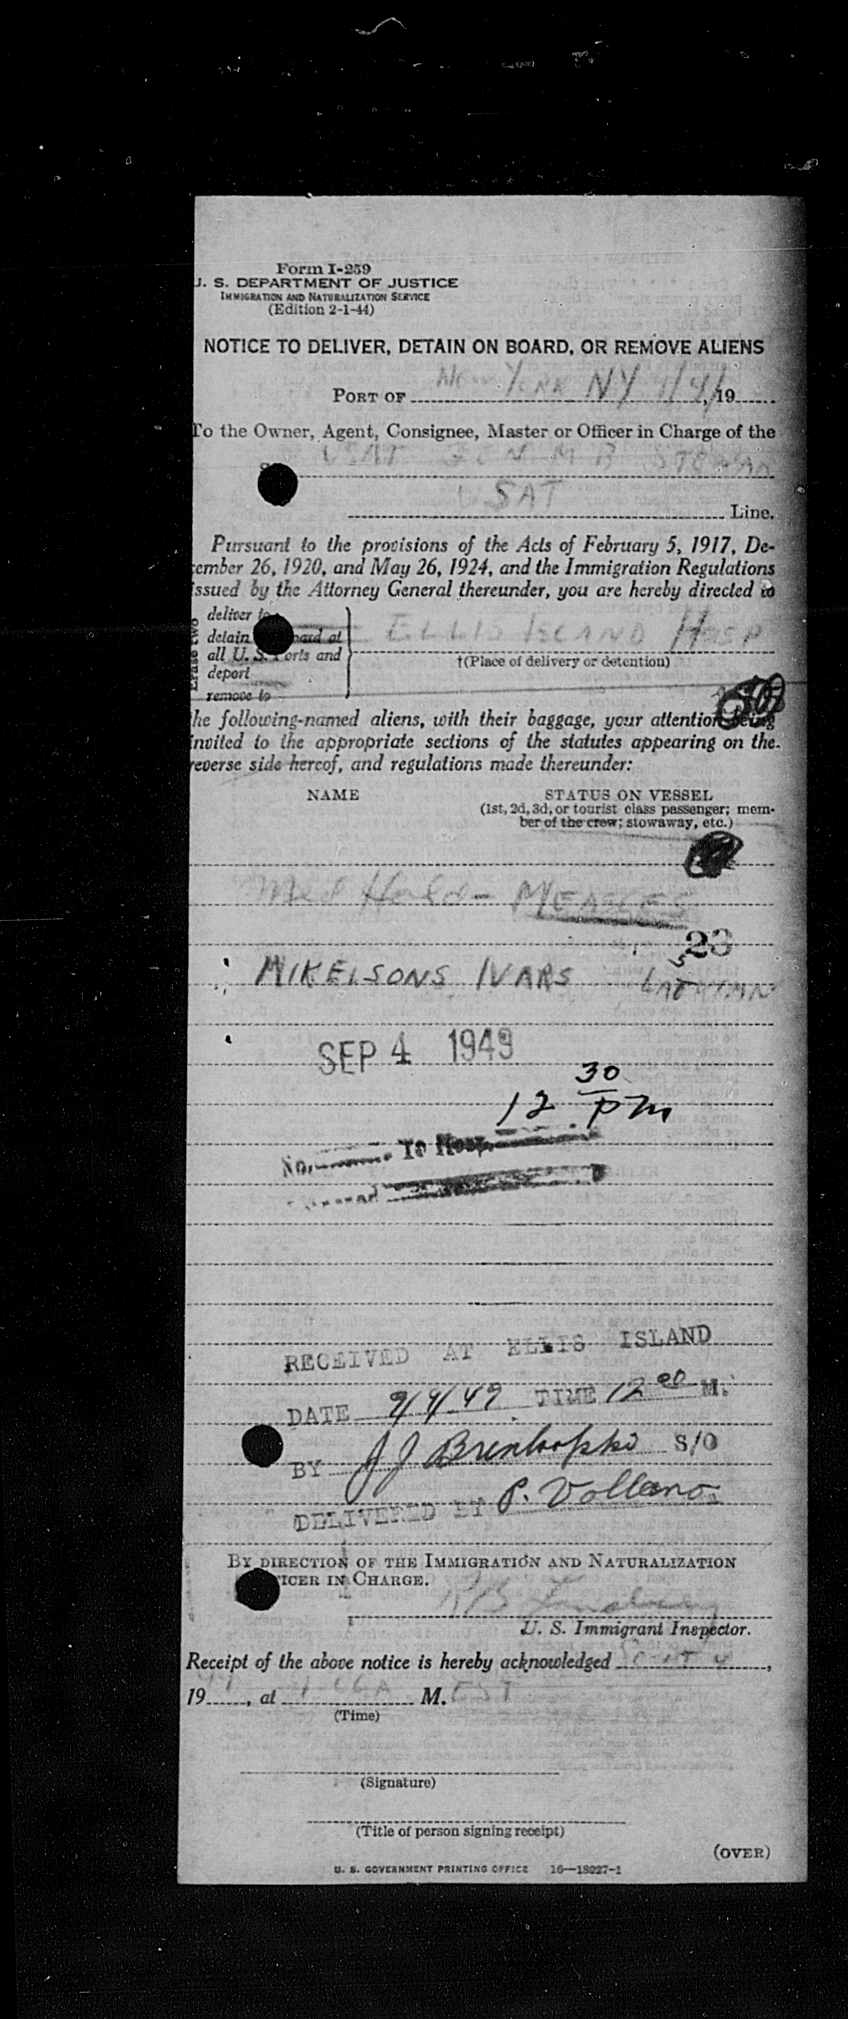 Form I-259
U. S. DEPARTMENT OF JUSTICE
IMMIGRATION AND NATURALIZATION SERVICE
(Edition 2-1-44)
NOTICE TO DELIVER, DETAIN ON BOARD, OR REMOVE ALIENS
PORT OF New York NY 9/4/, 19
To the Owner, Agent, Consignee, Master or Officer in Charge of the
USAT GEN M B
USAT Line.
Pursuant to the provisions of the Acts of February 5, 1917, De-
cember 26, 1920, and May 26, 1924, and the Immigration Regulations
issued by the Attorney General thereunder, you are hereby directed to
deliver to
detain board at
all U. S. Ports and
deport
remove to
Erase two
ELLIS ISLAND HOSP
†(Place of delivery or detention)
the following-named aliens, with their baggage, your attention being
invited to the appropriate sections of the statutes appearing on the
reverse side hereof, and regulations made thereunder:
NAME STATUS ON VESSEL
(1st, 2d, 3d, or tourist class passenger; mem-
ber of the crew; stowaway, etc.)
Med Hold - MEASLES
23
MIKELSONS IVARS 5 LATVIAN
SEP 4 1949
12 30 pm
No. To Hosp.
RECEIVED AT ELLIS ISLAND
DATE 9/4/49 TIME 12 00 M.
BY J J S/O
DELIVERED BY P. Vollano
BY DIRECTION OF THE IMMIGRATION AND NATURALIZATION
OFFICER IN CHARGE.
U. S. Immigrant Inspector.
Receipt of the above notice is hereby acknowledged Sept 4,
19, at M. EST
(Time)
(Signature)
(Title of person signing receipt)
(OVER)
U. S. GOVERNMENT PRINTING OFFICE 16—18027-1